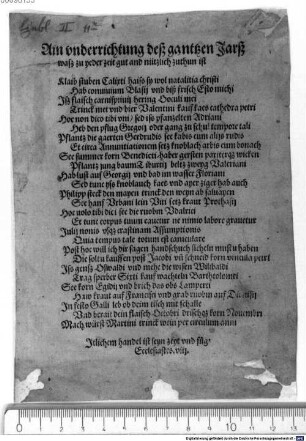 Ein vnderrichtung deß gantzen Jarß
waß zu yeder zeit gut and nützlich zuthun ist
Klaib stuben Calixti haiß so wol natalitia christi
Hab communium Blasij vnd biß frisch Esto michi
Iß flaisch carnispriuij hering Oculi mei
Trinck met vnd bier Valentini kauff kaes cathedra petri
Hoc non dico tibi vni / sed iß pfanzelten Adriani
Heb den pflug Gregorj oder gang zu seil tempore tali
Pflantz die gaerten Gerdrudis set kabis cum alijs rudis
Et circa Annuntiationem setz knoblach arbis cum bonach
See summer korn Benedicti haber gersten wicken
Pflantz jung baum zweig Valeriani
Hab lust auf Georgij vnd bad im wasser Floriani
Sed tunc yß knoblauch kaes vnd ayer
Philipp steck den mayen trinck den weyn ad
See hanf Vrbani lein Viti setz kraut Prothasij
Hoc volo tibi dici see die rueben Vdalrici
Et tunc corpus tuum cauetur ne nimio labore grauetur
Julij nonis vsq; crastinam Assumptionis
Quia tempus tale totum est caniculare
Post hoc will ich dir sagen handschuech sicheln must du haben
Die solt kauffen post Jacobi vnd schneid korn vincula petri
Iß genß Oswaldi vnd rathe die wisen Wilibaldi
Trag sperber Sixti kauf wachteln Bartholomei
See korn Egidij vnd brich das obs Lamperti
Haw kraut auf Francisci vnd grab rueben auf Dionisij
In festo Galli leb ob dem tisch mit schalle
Vnd brat dein flaisch Octobri korn Nouembri
Mach würst Martini trinck wein per circulum anni
Itlichem handel ist seyn zeyt vnd fůg
Ecclesiastes. viij.